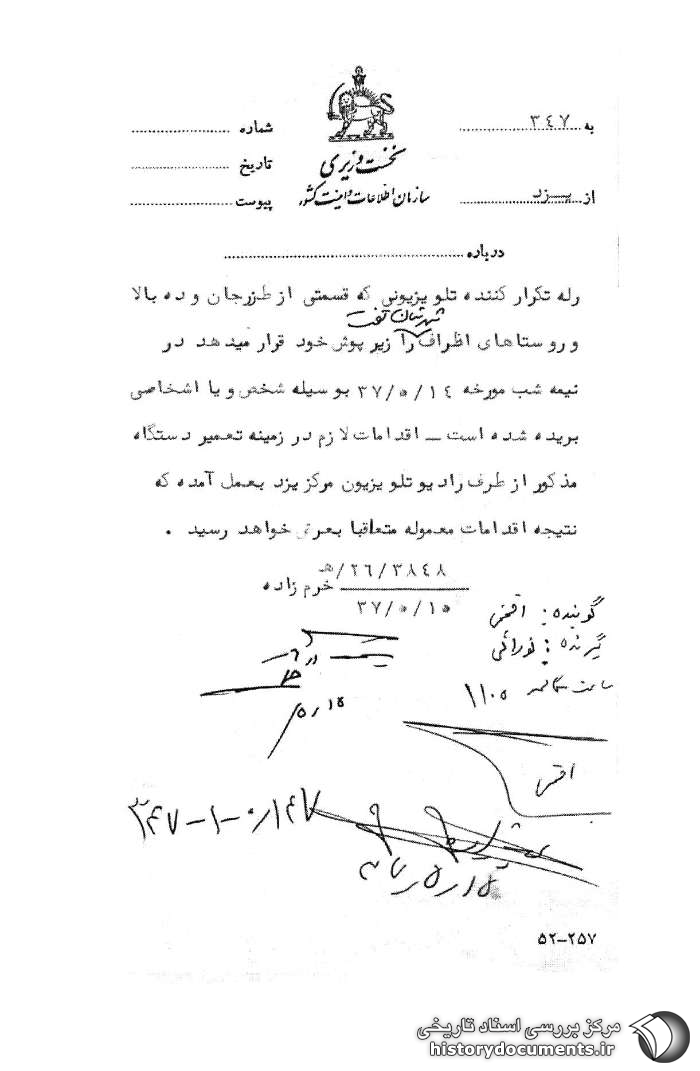 به ۳۴۷
شماره
نخست وزیری
تاریخ
سازمان اطلاعات و امنیت کشور
از یزد
پیوست
درباره
رله تکرار کننده تلویزیونی که قسمتی از طزرجان و ده بالا
شهرستان تفت
و روستاهای اطراف را زیر پوش خود قرار میدهد در
نیمه شب مورخه ۳۷/۵/۱۴ بوسیله شخص و یا اشخاصی
بریده شده است ــ اقدامات لازم در زمینه تعمیر دستگاه
مذکور از طرف رادیو تلویزیون مرکز یزد بعمل آمده که
نتیجه اقدامات معموله متعاقبا بعرض خواهد رسید .
۲۶/۳۸۴۸/هـ
خرم زاده
۳۷/۵/۱۵
گوینده :
گیرنده : نورائی
ساعت ۱۱۰۵
۱۵ ر ۵
۵۲-۲۵۷
مرکز بررسی اسناد تاریخی
historydocuments.ir